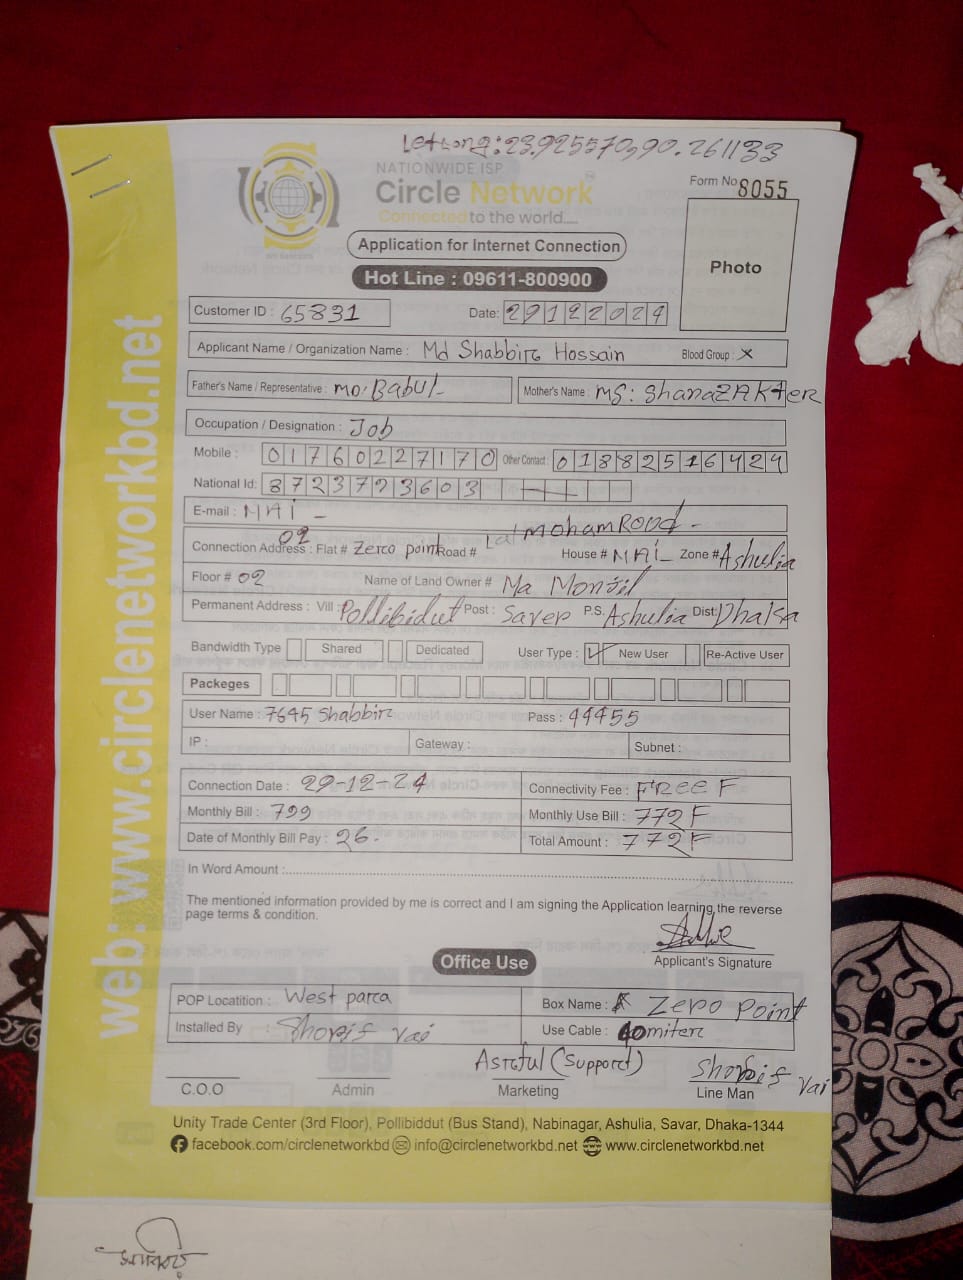 Letlong: 23.925570,90.261133
NATIONWIDE ISP
Circle Network
Connected to the world....
Form No 8055
Photo
Application for Internet Connection
Hot Line : 09611-800900
Customer ID : 65831 Date: 29122024
Applicant Name / Organization Name : Md Shabbir Hossain Blood Group : X
Father's Name / Representative : MD. Babul Mother's Name : MS: ShanaZ AKter
Occupation / Designation : Job
Mobile : 01760227170 Other Contact : 01882516424
National Id: 8723723603
E-mail : NAI
Connection Address : Flat # 02 Zero point Road # Lal moham Road House # NAI Zone # Ashulia
Floor # 02 Name of Land Owner # Ma
Permanent Address : Vill : Pollibidut Post : Saver P.S. Ashulia Dist: Dhaka
Bandwidth Type Shared Dedicated User Type : ✓ New User Re-Active User
Packeges
User Name : 7645 Shabbir Pass : 44455
IP : Gateway : Subnet :
Connection Date : 29-12-24 Connectivity Fee : FRee F
Monthly Bill : 799 Monthly Use Bill : 772 F
Date of Monthly Bill Pay : 26. Total Amount : 772 F
In Word Amount :
The mentioned information provided by me is correct and I am signing the Application learning the reverse
page terms & condition.
Applicant's Signature
Office Use
POP Locatition : West para Box Name : Zero point
Installed By : Shorif vai Use Cable : 40 miter
Asraful (Support) Shorif vai
C.O.O Admin Marketing Line Man
Unity Trade Center (3rd Floor), Pollibiddut (Bus Stand), Nabinagar, Ashulia, Savar, Dhaka-1344
facebook.com/circlenetworkbd info@circlenetworkbd.net www.circlenetworkbd.net
web: www.circlenetworkbd.net